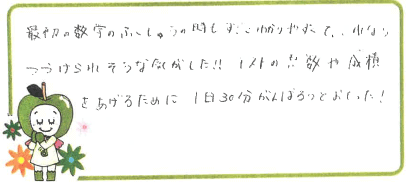 最初の数学のふくしゅうの時もすごくわかりやすくて、これなら
つづけられそうな気がした!! テストの点数や成績
をあげるために1日30分がんばろうとおもった!